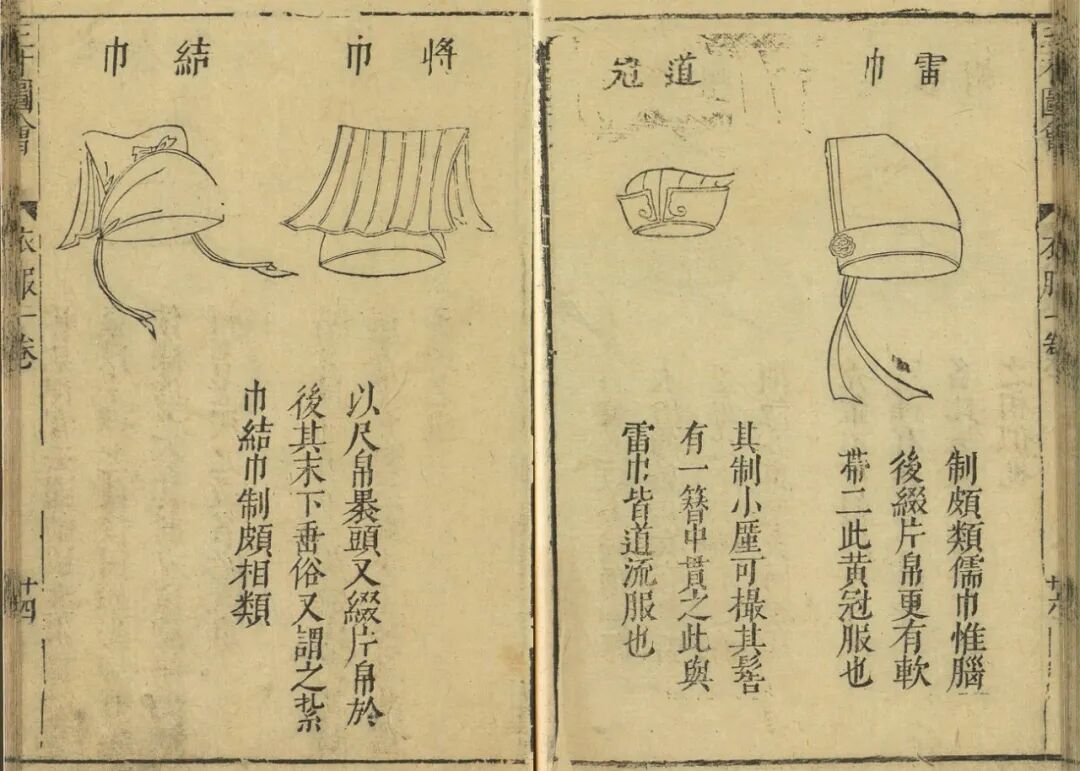 雷巾
制頗類儒巾惟腦
後綴片帛更有軟
帶二此黃冠服也
道冠
其制小厪可撮其髻
有一簪中貫之此與
雷巾皆道流服也
将巾
以尺帛裹頭又綴片帛於
後其末下垂俗又謂之紮
巾結巾制頗相類
結巾
三才圖會
衣服一卷
十四